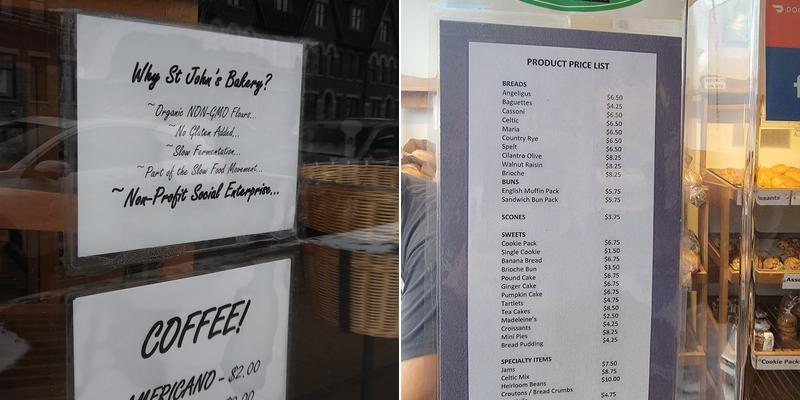 Why St John's Bakery?
~Organic NON-GMO Flours...
~No Gluten Added...
~Slow Fermentation...
~Part of the Slow Food Movement...
~Non-Profit Social Enterprise...
COFFEE!
AMERICANO - $2.00
PRODUCT PRICE LIST
BREADS
Angeligus $6.50
Baguettes $4.25
Cassoni $6.50
Celtic $6.50
Maria $6.50
Country Rye $6.50
Spelt $6.50
Cilantro Olive $8.25
Walnut Raisin $8.25
Brioche $8.25
BUNS
English Muffin Pack $5.75
Sandwich Bun Pack $5.75
SCONES $3.75
SWEETS
Cookie Pack $6.75
Single Cookie $1.50
Banana Bread $6.75
Brioche Bun $3.50
Pound Cake $6.75
Ginger Cake $6.75
Pumpkin Cake $6.75
Tartlets $4.75
Tea Cakes $8.50
Madeleine's $2.50
Croissants $4.25
Mini Pies $8.25
Bread Pudding $4.25
SPECIALTY ITEMS
Jams $7.50
Celtic Mix $8.75
Heirloom Beans $10.00
Croutons / Bread Crumbs $4.75
Cookie Packs